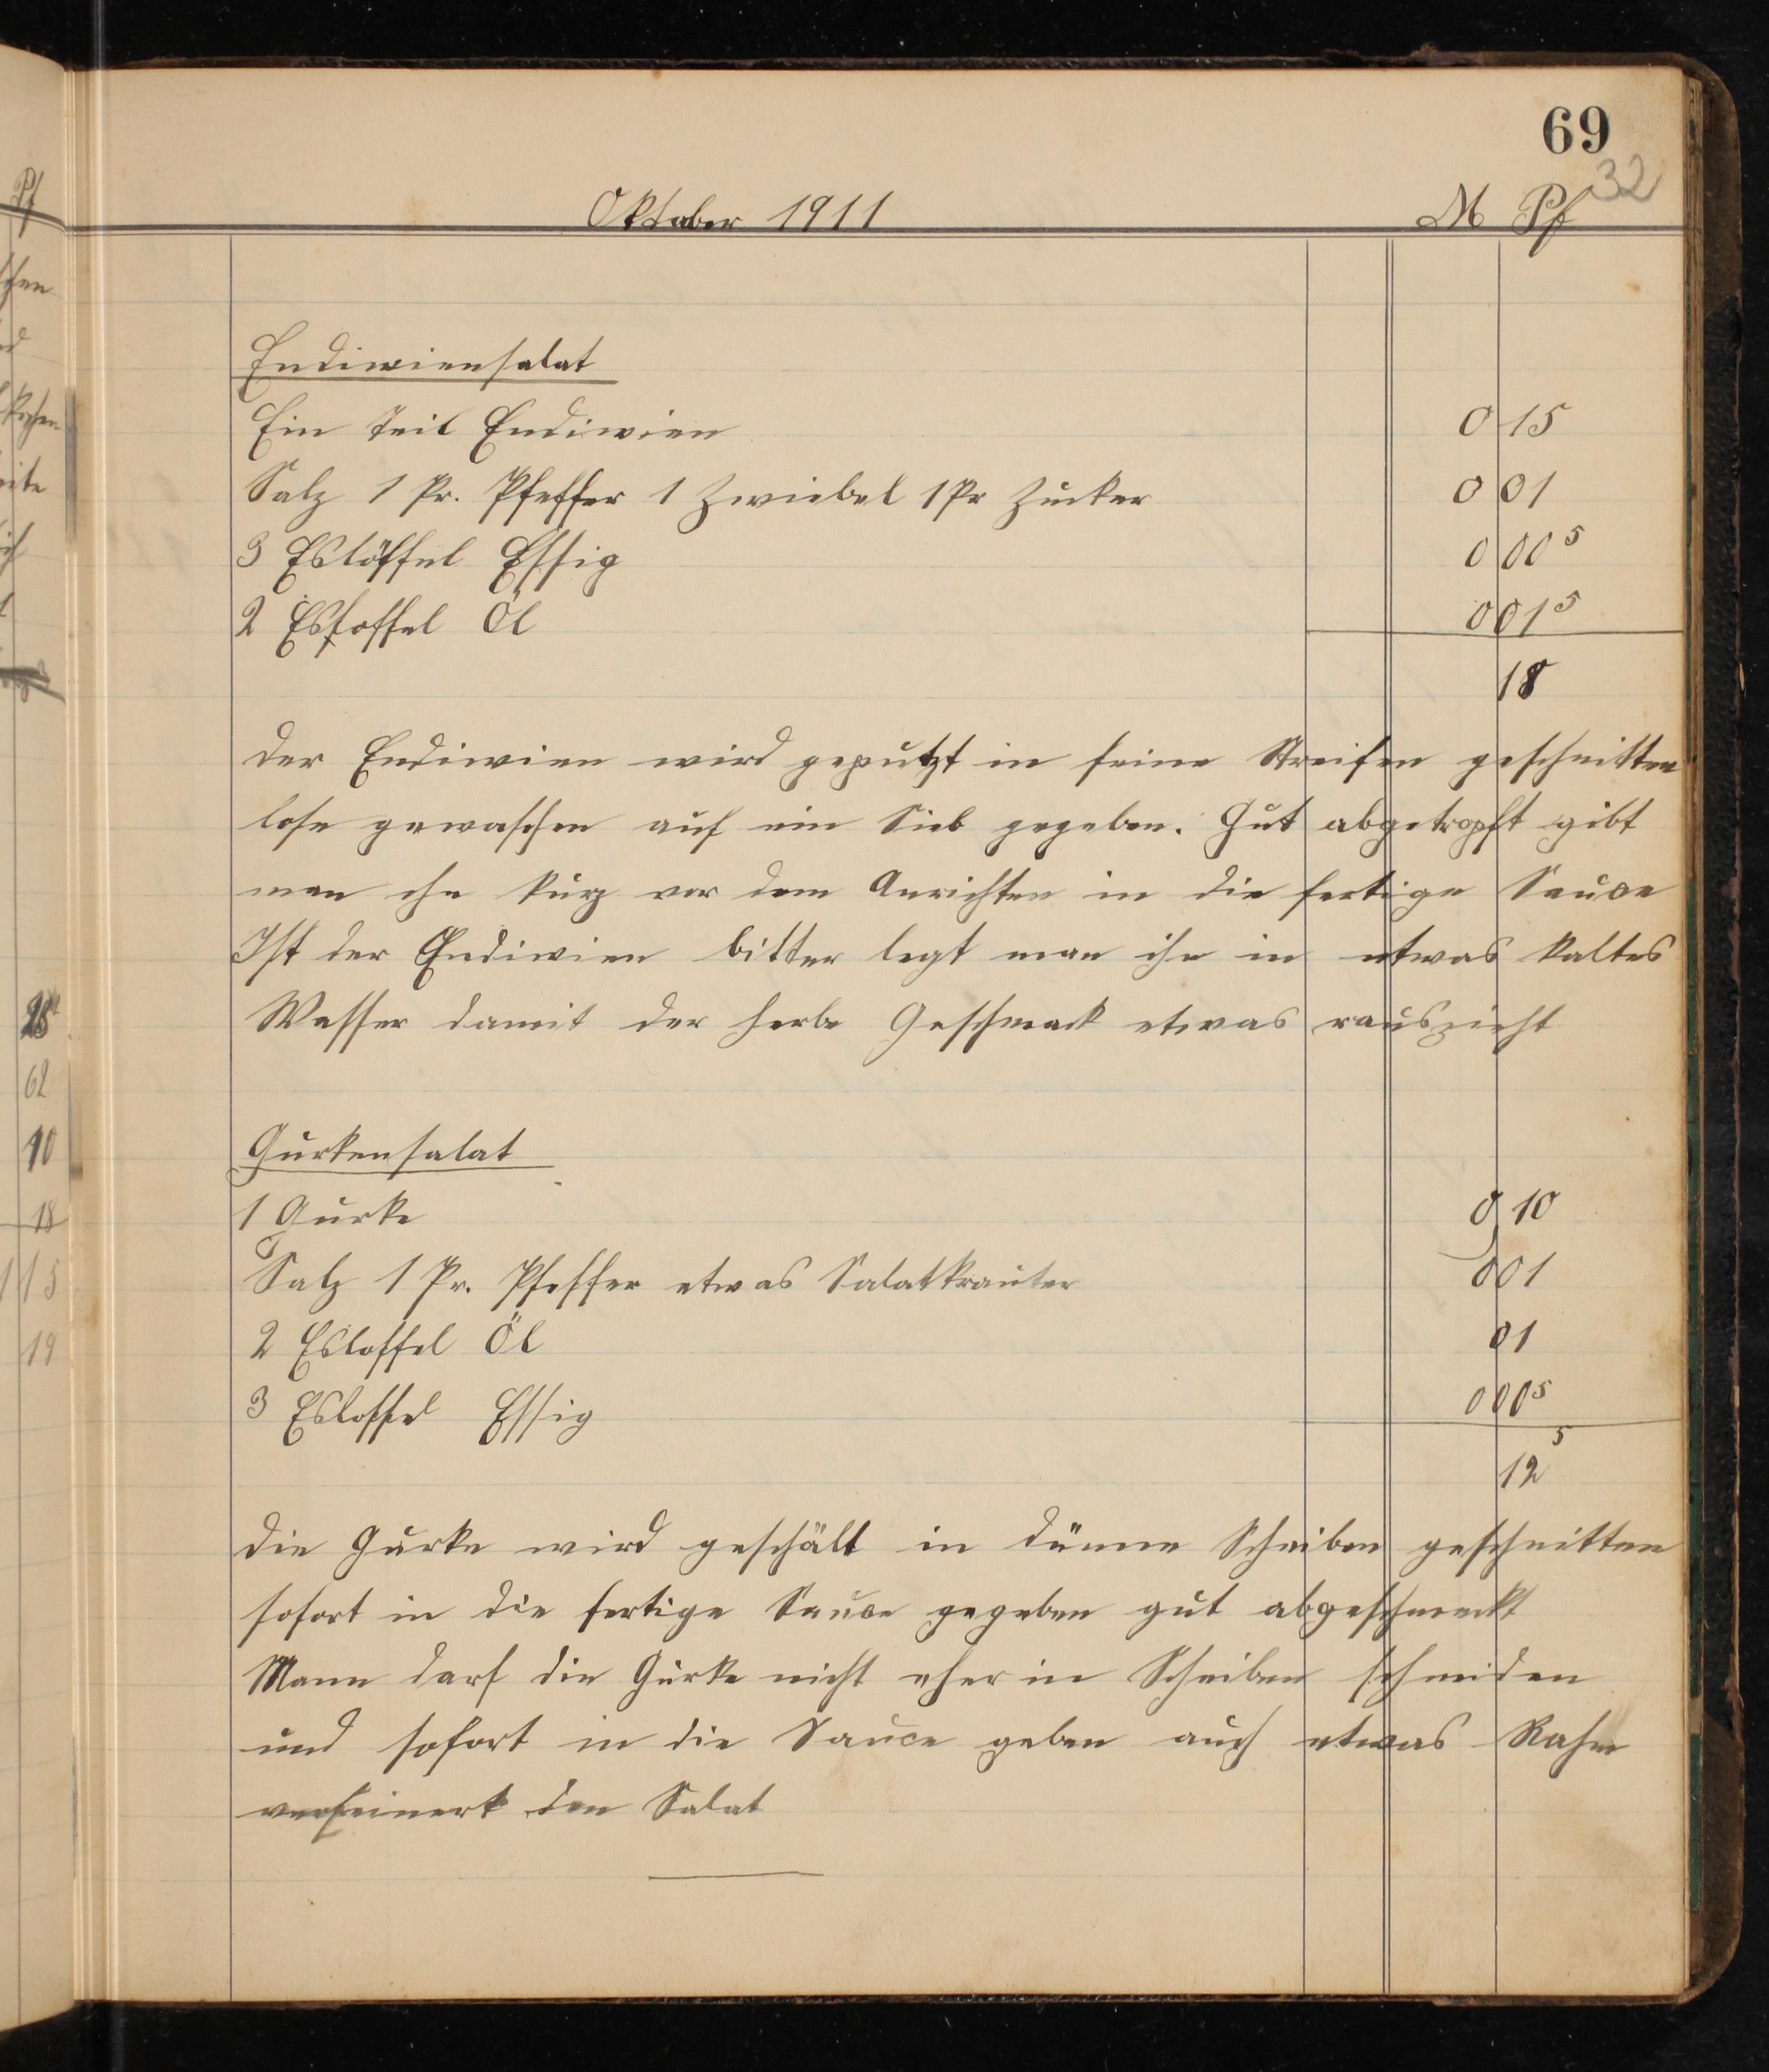 69
32
Oktober 1911 M Pf
Endiviensalat
Ein Teil Endivien 0 15
Salz 1 Pr. Pfeffer 1 Zwiebel 1 Pr Zucker 0 01
3 Eslöffel Essig 0 00 5
2 Esloffel Öl 0 01 5
18
Der Endivien wird geputzt in feine Streifen geschnitten
lose gewaschen auf ein Sieb gegeben. Gut abgetropft gibt
man ihn kurz vor dem Anrichten in die fertige Sauce
Ist der Endivien bitter legt man ihn in etwas kaltes
Wasser damit der herbe Geschmack etwas rauszieht
Gurkensalat
1 Gurke 0 10
Salz 1 Pr. Pfeffer etwas Salatkrauter 0 01
2 Esloffel Öl 01
3 Esloffel Essig 0 00 5
12 5
Die Gurke wird geschält in dünne Scheiben geschnitten
sofort in die fertige Sauce gegeben gut abgeschmeckt
Mann darf die Gurke nicht eher in Scheiben schneiden
und sofort in die Sauce geben auch etwas Rahm
verfeinert den Salat